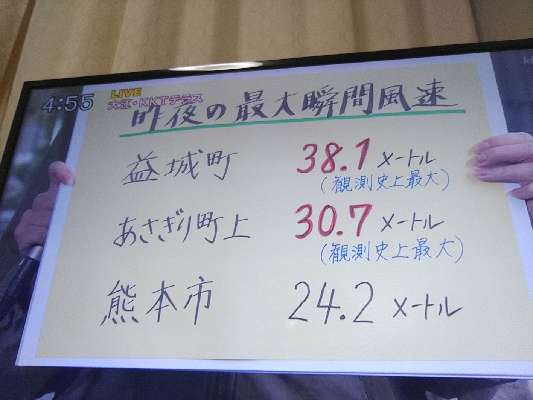 4:55
LIVE
大江・KKTテラス
昨夜の最大瞬間風速
益城町 38.1 メートル
(観測史上最大)
あさぎり町上 30.7 メートル
(観測史上最大)
熊本市 24.2 メートル